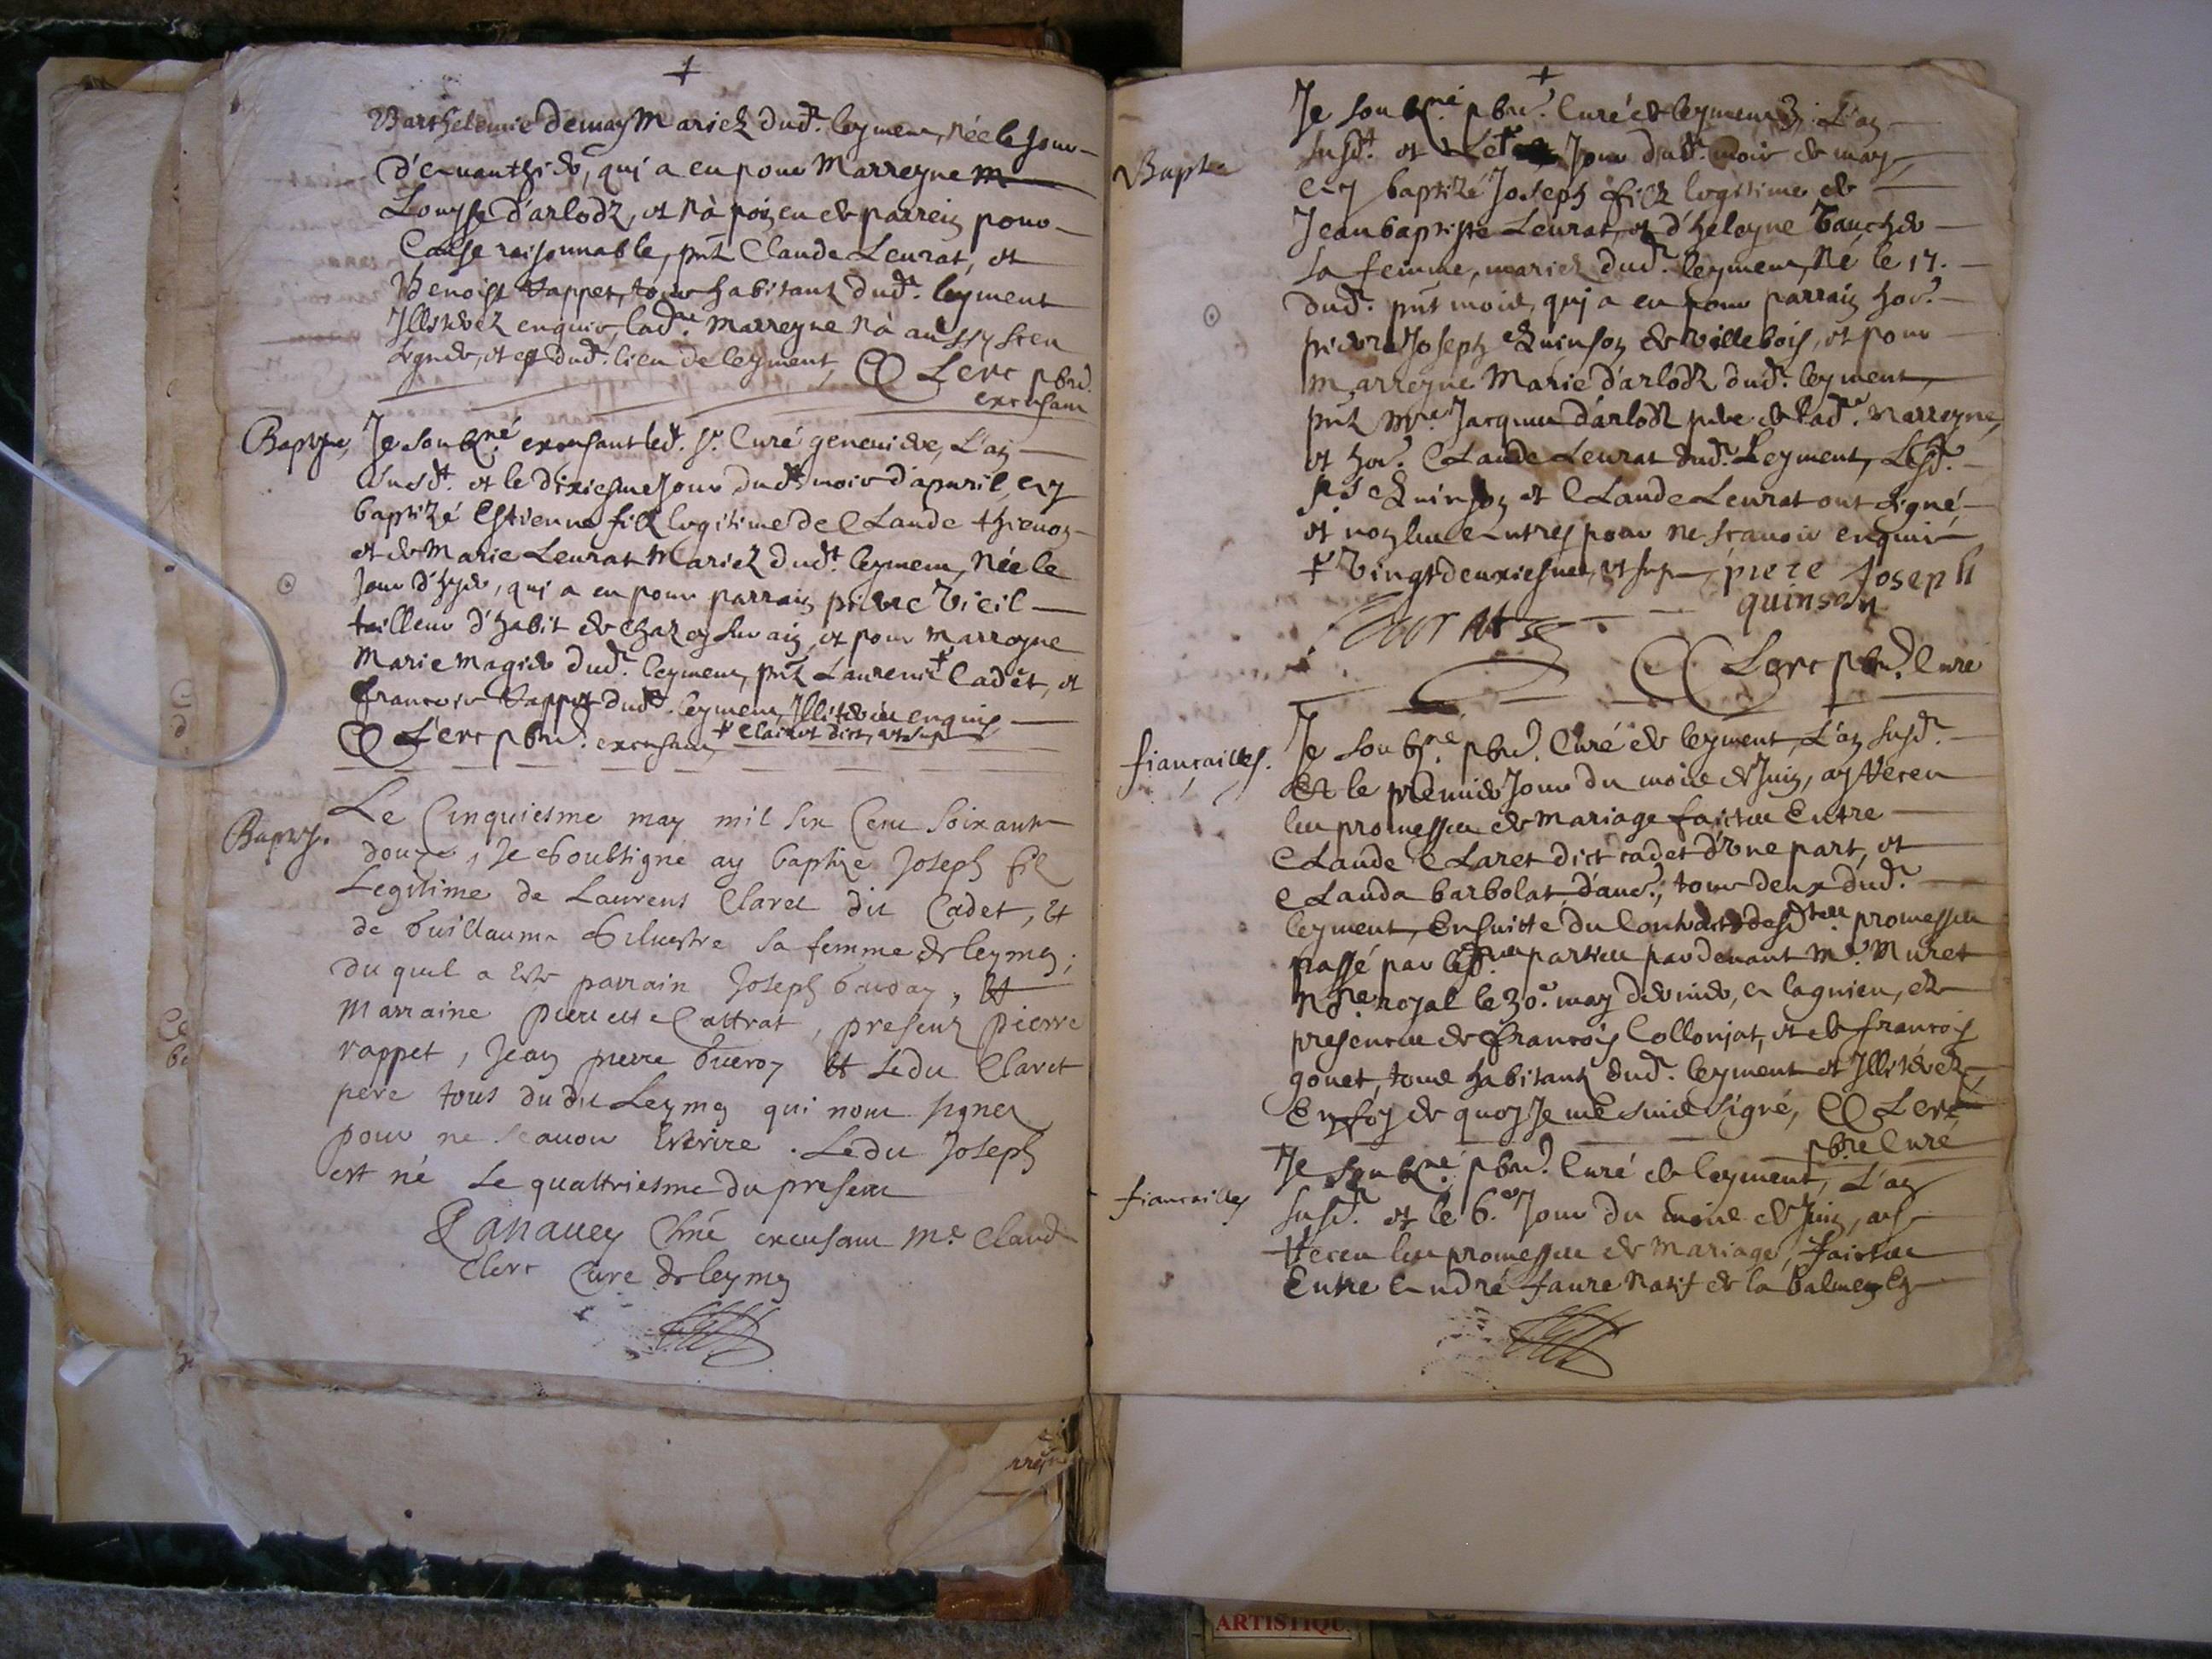 Barthelemie demay Mariez dud.t leyment, Née le Jour
d'euant hier, qui a eu pour Marreyne
Louyse d'arlodz, et n'a poin eu de parrein pour
Cause raisonnable, pñt Claude Leurat, et
Benoist Vappet, tous habitans dud.t leyment
Illiterez enquis, lad.te Marreyne n'a aussy sceu
signer, et est dud.t lieu de leyment, C Lerc pbre
excusant
Baptesme, Je soubz.né excusant led.t S.r Curé Genevieve, L'an
susd.t et le dixiesme Jour dud.t mois d'apuril, ay
baptizé Estienne filz legitime de Claude thienon
et de Marie Leurat Mariez dud.t leyment, Née le
Jour d'hyer, qui a eu pour parrain pierre Vieil
tailleur d'habit de Chazey sur ain, et pour marreyne
Marie magie dud.t leyment, pñt Laurent + Cadet, et
francois Vappet dud.t leyment, Illiterez enquis
C Lerc pbre excusant, + Claret dict, et sup
Bapt. Le Cinquiesme may mil six Cent soixante
douze, Je soubsigné ay baptize Joseph filz
Legitime de Laurens Claret dit Cadet, et
de Guillauma Siluestre sa femme de leyment;
duquel a este parrain Joseph , et
Marraine pierrette Cattrat, presens pierre
vappet, Jean pierre et Ledit Claret
pere tous dudit Leyment qui n'ont signer
pour ne scauoir Escrire. Ledit Joseph
est né le quattriesme du present
Canauey excusant M.e Claude
Clerc Cure de leyment
Bapt.e Je soubz.né pbre Curé de leyment, L'an
susd.t et Le + Jour dud.t mois de may
ay baptizé Joseph filz legitime de
Jean baptiste Leurat, et d'heleyne
sa femme, mariez dud.t leyment, Né le 17.
dud.t pñt mois, qui a eu pour parrain hon.
pierre Joseph Quinson de Villebois, et pour
marreyne Marie d'arlodz dud.t leyment,
pñt M.re Jacques d'arlodz pere de lad.te Marreyne,
et hon. Claude Leurat dud.t Leyment, Lesd.
s.rs Quinson et Claude Leurat ont signé
et non les autres pour ne scauoir enquis
+ Vingtdeuxiesme, et sup piere Joseph
quinson
Leurat
C Lerc pbre Curé
fiançailles. Je soubs.né pbre Curé de leyment, L'an susd.t
Et le premier Jour du mois de Juin, ay Receu
les promesses de mariage faictes Entre
Claude Claret dict cadet d'vne part, et
Clauda barbolat, d'autre, tous deux dud.t
leyment, Ensuitte du Contract desd.tes promesses
passé par lesd.tes parties par deuant M.e Muret
N.re royal le 30.e may dernier, a lagnieu, en
presence de francois Collonjat, et de francois
gouet, tous habitans dud.t leyment et Illiterez,
En foy de quoy Je me suis signé, C Lerc
pbre Curé
fiançailles Je soubz.né pbre Curé de leyment, L'an
susd.t et le 6.e Jour du mois de Juin, ay
Receu les promesses de Mariage, faictes
Entre Andre faure Natif de la balme, En